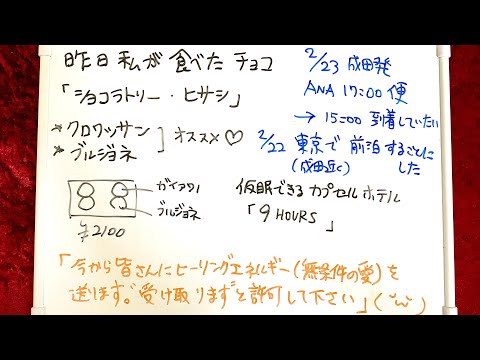 昨日私が食べたチョコ
「ショコラトリー・ヒサシ」
*クロワッサン
*ブルジョネ
オススメ♡
8 8
ガイアナ
ブルジョネ
¥2100
2/23 成田発
ANA 17:00便
→ 15:00 到着していたい
2/22 東京で前泊することに
(成田近く) した
仮眠できるカプセルホテル
「9 HOURS」
「今から皆さんにヒーリングエネルギー(無条件の愛)を
送ります。"受け取ります"と許可して下さい」